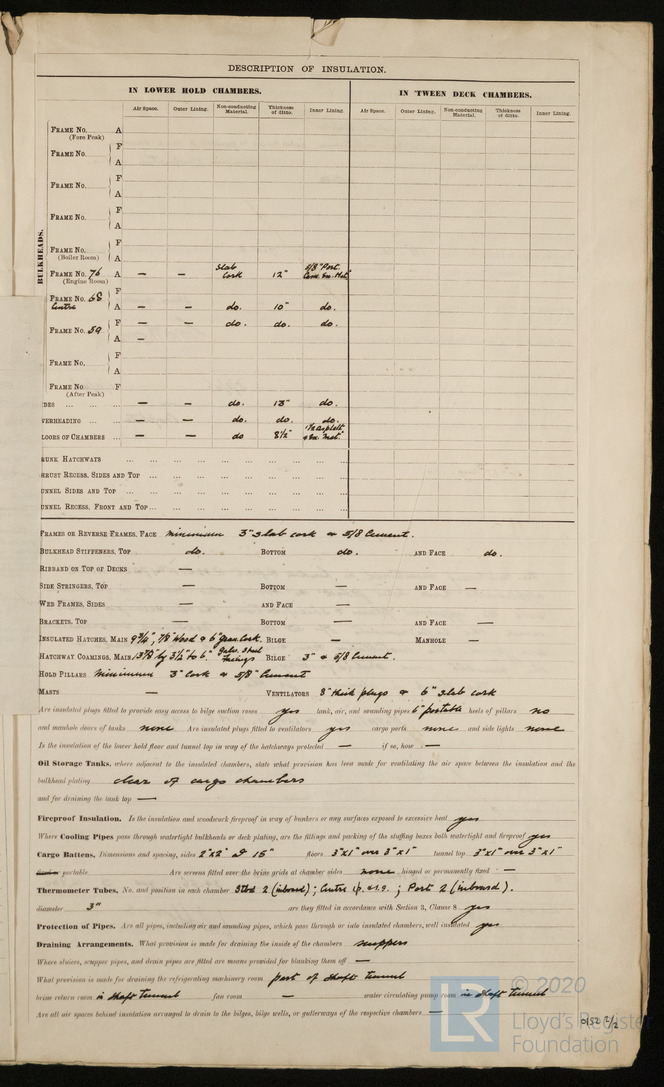 DESCRIPTION OF INSULATION.
IN LOWER HOLD CHAMBERS. IN 'TWEEN DECK CHAMBERS.
Air Space. Outer Lining. Non-conducting Material. Thickness of ditto. Inner Lining. Air Space. Outer Lining. Non-conducting Material. Thickness of ditto. Inner Lining.
BULKHEADS.
FRAME No. A
(Fore Peak)
FRAME No. F
A
FRAME No. F
A
FRAME No. F
A
FRAME No. F
(Boiler Room) A
FRAME No. 76 A — — Slab Cork 12" 5/8 "Port. Cem. Ex. Met."
(Engine Room)
FRAME No. 68 F
Centre A — — do. 10" do.
FRAME No. 59 F — — do. do. do.
A —
FRAME No. F
A
FRAME No. F
(After Peak)
IDES ... — — do. do.
VERHEADING ... — — do. do. do.
LOORS OF CHAMBERS ... — — do 8½" ½ Asphlt & Ex. Met.
RUNK HATCHWAYS
HRUST RECESS, SIDES AND TOP ...
UNNEL SIDES AND TOP ...
UNNEL RECESS, FRONT AND TOP ...
FRAMES OR REVERSE FRAMES, FACE minimum 3" slab cork & 5/8 Cement.
BULKHEAD STIFFENERS, TOP do. BOTTOM do. AND FACE do.
RIBBAND ON TOP OF DECKS —
SIDE STRINGERS, TOP — BOTTOM — AND FACE —
WEB FRAMES, SIDES — AND FACE —
BRACKETS, TOP — BOTTOM — AND FACE —
INSULATED HATCHES, MAIN 9¾", 7/8 Wood & 6" Gran. Cork. BILGE — MANHOLE —
HATCHWAY COAMINGS, MAIN by 3½" to 6" Galv. Steel facings BILGE 3" & 5/8 Cement.
HOLD PILLARS minimum 3" Cork & 5/8" Cement
MASTS — VENTILATORS 8" thick plugs & 6" slab cork
Are insulated plugs fitted to provide easy access to bilge suction roses yes tank, air, and sounding pipes 6" portable heels of pillars no
and manhole doors of tanks none Are insulated plugs fitted to ventilators yes cargo ports none and side lights none
Is the insulation of the lower hold floor and tunnel top in way of the hatchways protected — if so, how —
Oil Storage Tanks, where adjacent to the insulated chambers, state what provision has been made for ventilating the air space between the insulation and the
bulkhead plating clear of cargo chambers
and for draining the tank top —
Fireproof Insulation. Is the insulation and woodwork fireproof in way of bunkers or any surfaces exposed to excessive heat yes
Where Cooling Pipes pass through watertight bulkheads or deck plating, are the fittings and packing of the stuffing boxes both watertight and fireproof yes
Cargo Battens, Dimensions and spacing, sides 2"x2" @ 15" floors 3"x1" over 3"x1" tunnel top 3"x1" over 3"x1"
fixed or portable Are screens fitted over the brine grids at chamber sides none hinged or permanently fixed —
Thermometer Tubes, No. and position in each chamber Stbd 2 (inboard); Centre 1p. & 1s.; Port 2 (inboard).
diameter 3" are they fitted in accordance with Section 3, Clause 8 yes
Protection of Pipes. Are all pipes, including air and sounding pipes, which pass through or into insulated chambers, well insulated yes
Draining Arrangements. What provision is made for draining the inside of the chambers scuppers
Where sluices, scupper pipes, and drain pipes are fitted are means provided for blanking them off —
What provision is made for draining the refrigerating machinery room part of shaft tunnel
brine return room in shaft tunnel fan room — water circulating pump room in shaft tunnel
Are all air spaces behind insulation arranged to drain to the bilges, bilge wells, or gutterways of the respective chambers —
© 2020
LR
Lloyd's Register
Foundation
0152 2/2